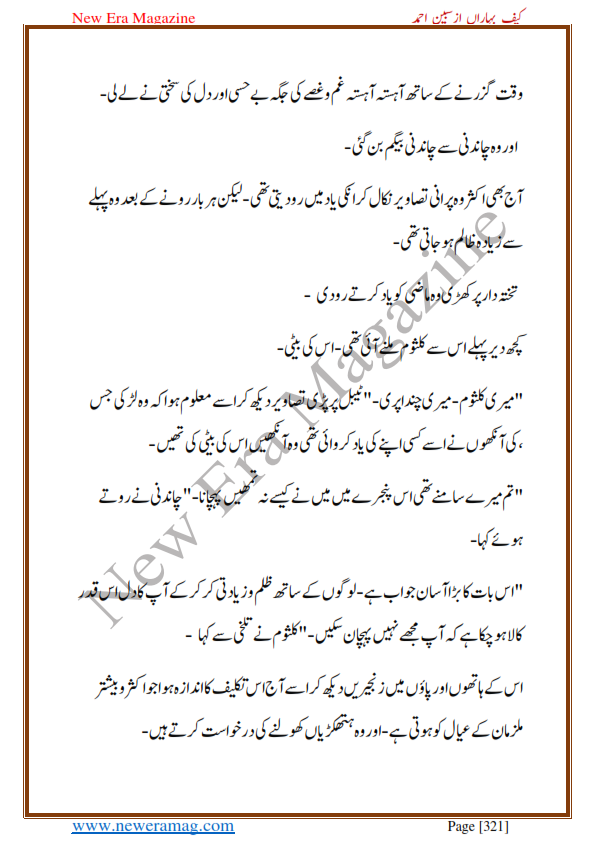 New Era Magazine
کیف بہاراں از سبین احمد
وقت گزرنے کے ساتھ آہستہ آہستہ غم و غصے کی جگہ بے حسی اور دل کی سختی نے لے لی-
اور وہ چاندنی سے چاندنی بیگم بن گئی-
آج بھی اکثر وہ پرانی تصاویر نکال کر انکی یاد میں رو دیتی تھی-لیکن ہر بار رونے کے بعد وہ پہلے
سے زیادہ ظالم ہو جاتی تھی-
تختہ دار پر کھڑی وہ ماضی کو یاد کرتے رو دی -
کچھ دیر پہلے اس سے کلثوم ملنے آئی تھی-اس کی بیٹی-
"میری کلثوم-میری چندا پری-"ٹیبل پر پڑی تصاویر دیکھ کر اسے معلوم ہوا کہ وہ لڑکی جس
،کی آنکھوں نے اسے کسی اپنے کی یاد کروائی تھی وہ آنکھیں اس کی بیٹی کی تھیں-
"تم میرے سامنے تھی اس پنجرے میں میں نے کیسے نہ تمھیں پہچانا-"چاندنی نے روتے
ہوئے کہا-
"اس بات کا بڑا آسان جواب ہے-لوگوں کے ساتھ ظلم و زیادتی کر کر کے آپ کا دل اس قدر
کالا ہو چکا ہے کہ آپ مجھے نہیں پہچان سکیں-"کلثوم نے تلخی سے کہا -
اس کے ہاتھوں اور پاؤں میں زنجیریں دیکھ کر اسے آج اس تکلیف کا اندازہ ہوا جو اکثر و بیشتر
ملزمان کے عیال کو ہوتی ہے-اور وہ ہتھکڑیاں کھولنے کی درخواست کرتے ہیں-
New Era Magazine
www.neweramag.com
Page [321]